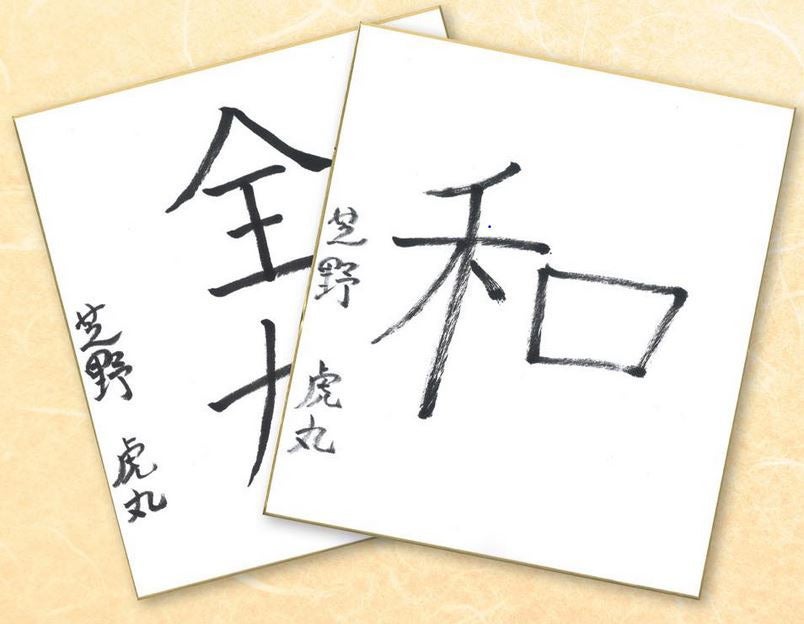 和
芝野 虎丸
全
芝野 虎丸